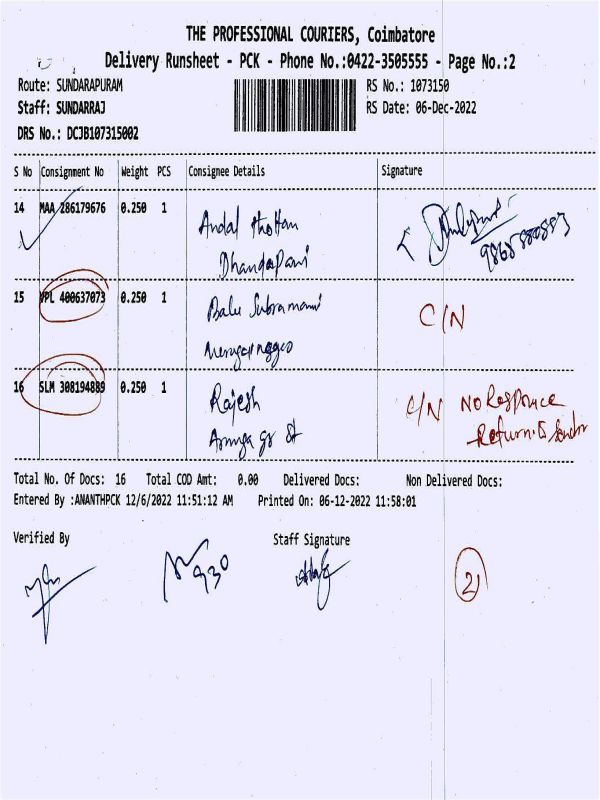 THE PROFESSIONAL COURIERS, Coimbatore
Delivery Runsheet - PCK - Phone No.:0422-3505555 - Page No.:2
Route: SUNDARAPURAM
RS No.: 1073150
Staff: SUNDARRAJ
RS Date: 06-Dec-2022
DRS No.: DCJB107315002
S No Consignment No Weight PCS Consignee Details Signature
14 MAA 286179676 0.250 1 Andal
Dhandapani
15 VPL 400637073 0.250 1 Balu Subramani C/N
16 SLM 308194889 0.250 1 Rajesh C/N No Responce
Return to Sender
St
Total No. Of Docs: 16 Total COD Amt: 0.00 Delivered Docs: Non Delivered Docs:
Entered By :ANANTHPCK 12/6/2022 11:51:12 AM Printed On: 06-12-2022 11:58:01
Verified By Staff Signature
930
21